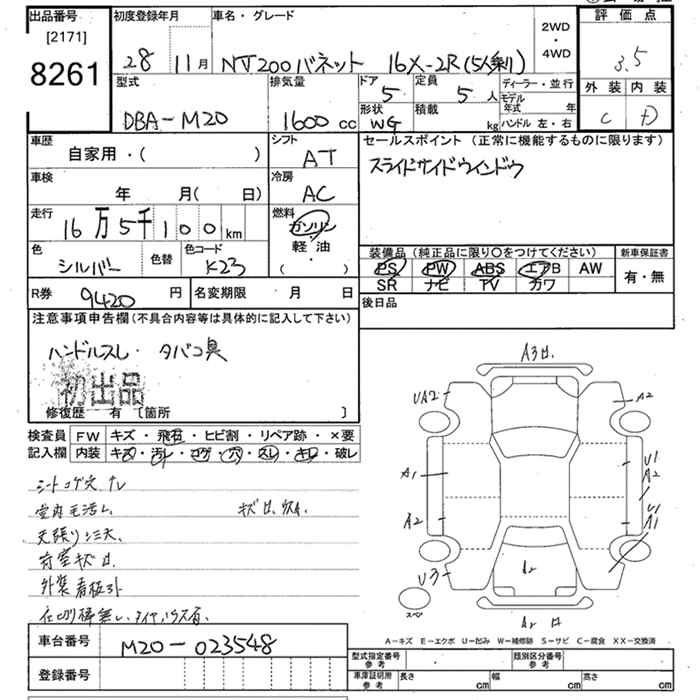 出品番号
[2171]
8261
初度登録年月
28 11月
車名・グレード
NT200バネット 16X-2R(5人乗り)
2WD
・
4WD
評価点
3.5
外装 内装
C D
型式
DBA-M20
排気量
1600 cc
ドア
5
定員
5 人
形状
WG
積載
kg
ディーラー・並行
モデル年式 年
ハンドル 左・右
車歴
自家用・( )
シフト
AT
セールスポイント(正常に機能するものに限ります)
スライドサイドウインドウ
車検
年 月( 日)
冷房
AC
走行
16万5千100km
燃料
ガソリン
軽・油
( )
色
シルバー
色替
色コード
K23
装備品(純正品に限り〇をつけてください)
PS PW ABS エアB AW
SR ナビ TV カワ
新車保証書
有・無
R券
9420円
名変期限 月 日
後日品
注意事項申告欄(不具合内容等は具体的に記入して下さい)
ハンドルスレ・タバコ臭
初出品
修復歴 有 〔箇所 〕
検査員
記入欄
FW キズ・飛石・ヒビ割・リペア跡・×要
内装 キズ・汚レ・コゲ・穴・スレ・キレ・破レ
シートコゲ穴 スレ
天張りシミ大
外装看板跡
A3
UA2
A2
A1
U1
A2
A2
U1
A1
U3
A2
A2
スペア
A-キズ E-エクボ U-凹み W-補修跡 S-サビ C-腐食 XX-交換済
車台番号
M20-023548
登録番号
型式指定番号
参考
類別区分番号
参考
車庫証明所
参考
長さ cm
幅 cm
高さ cm